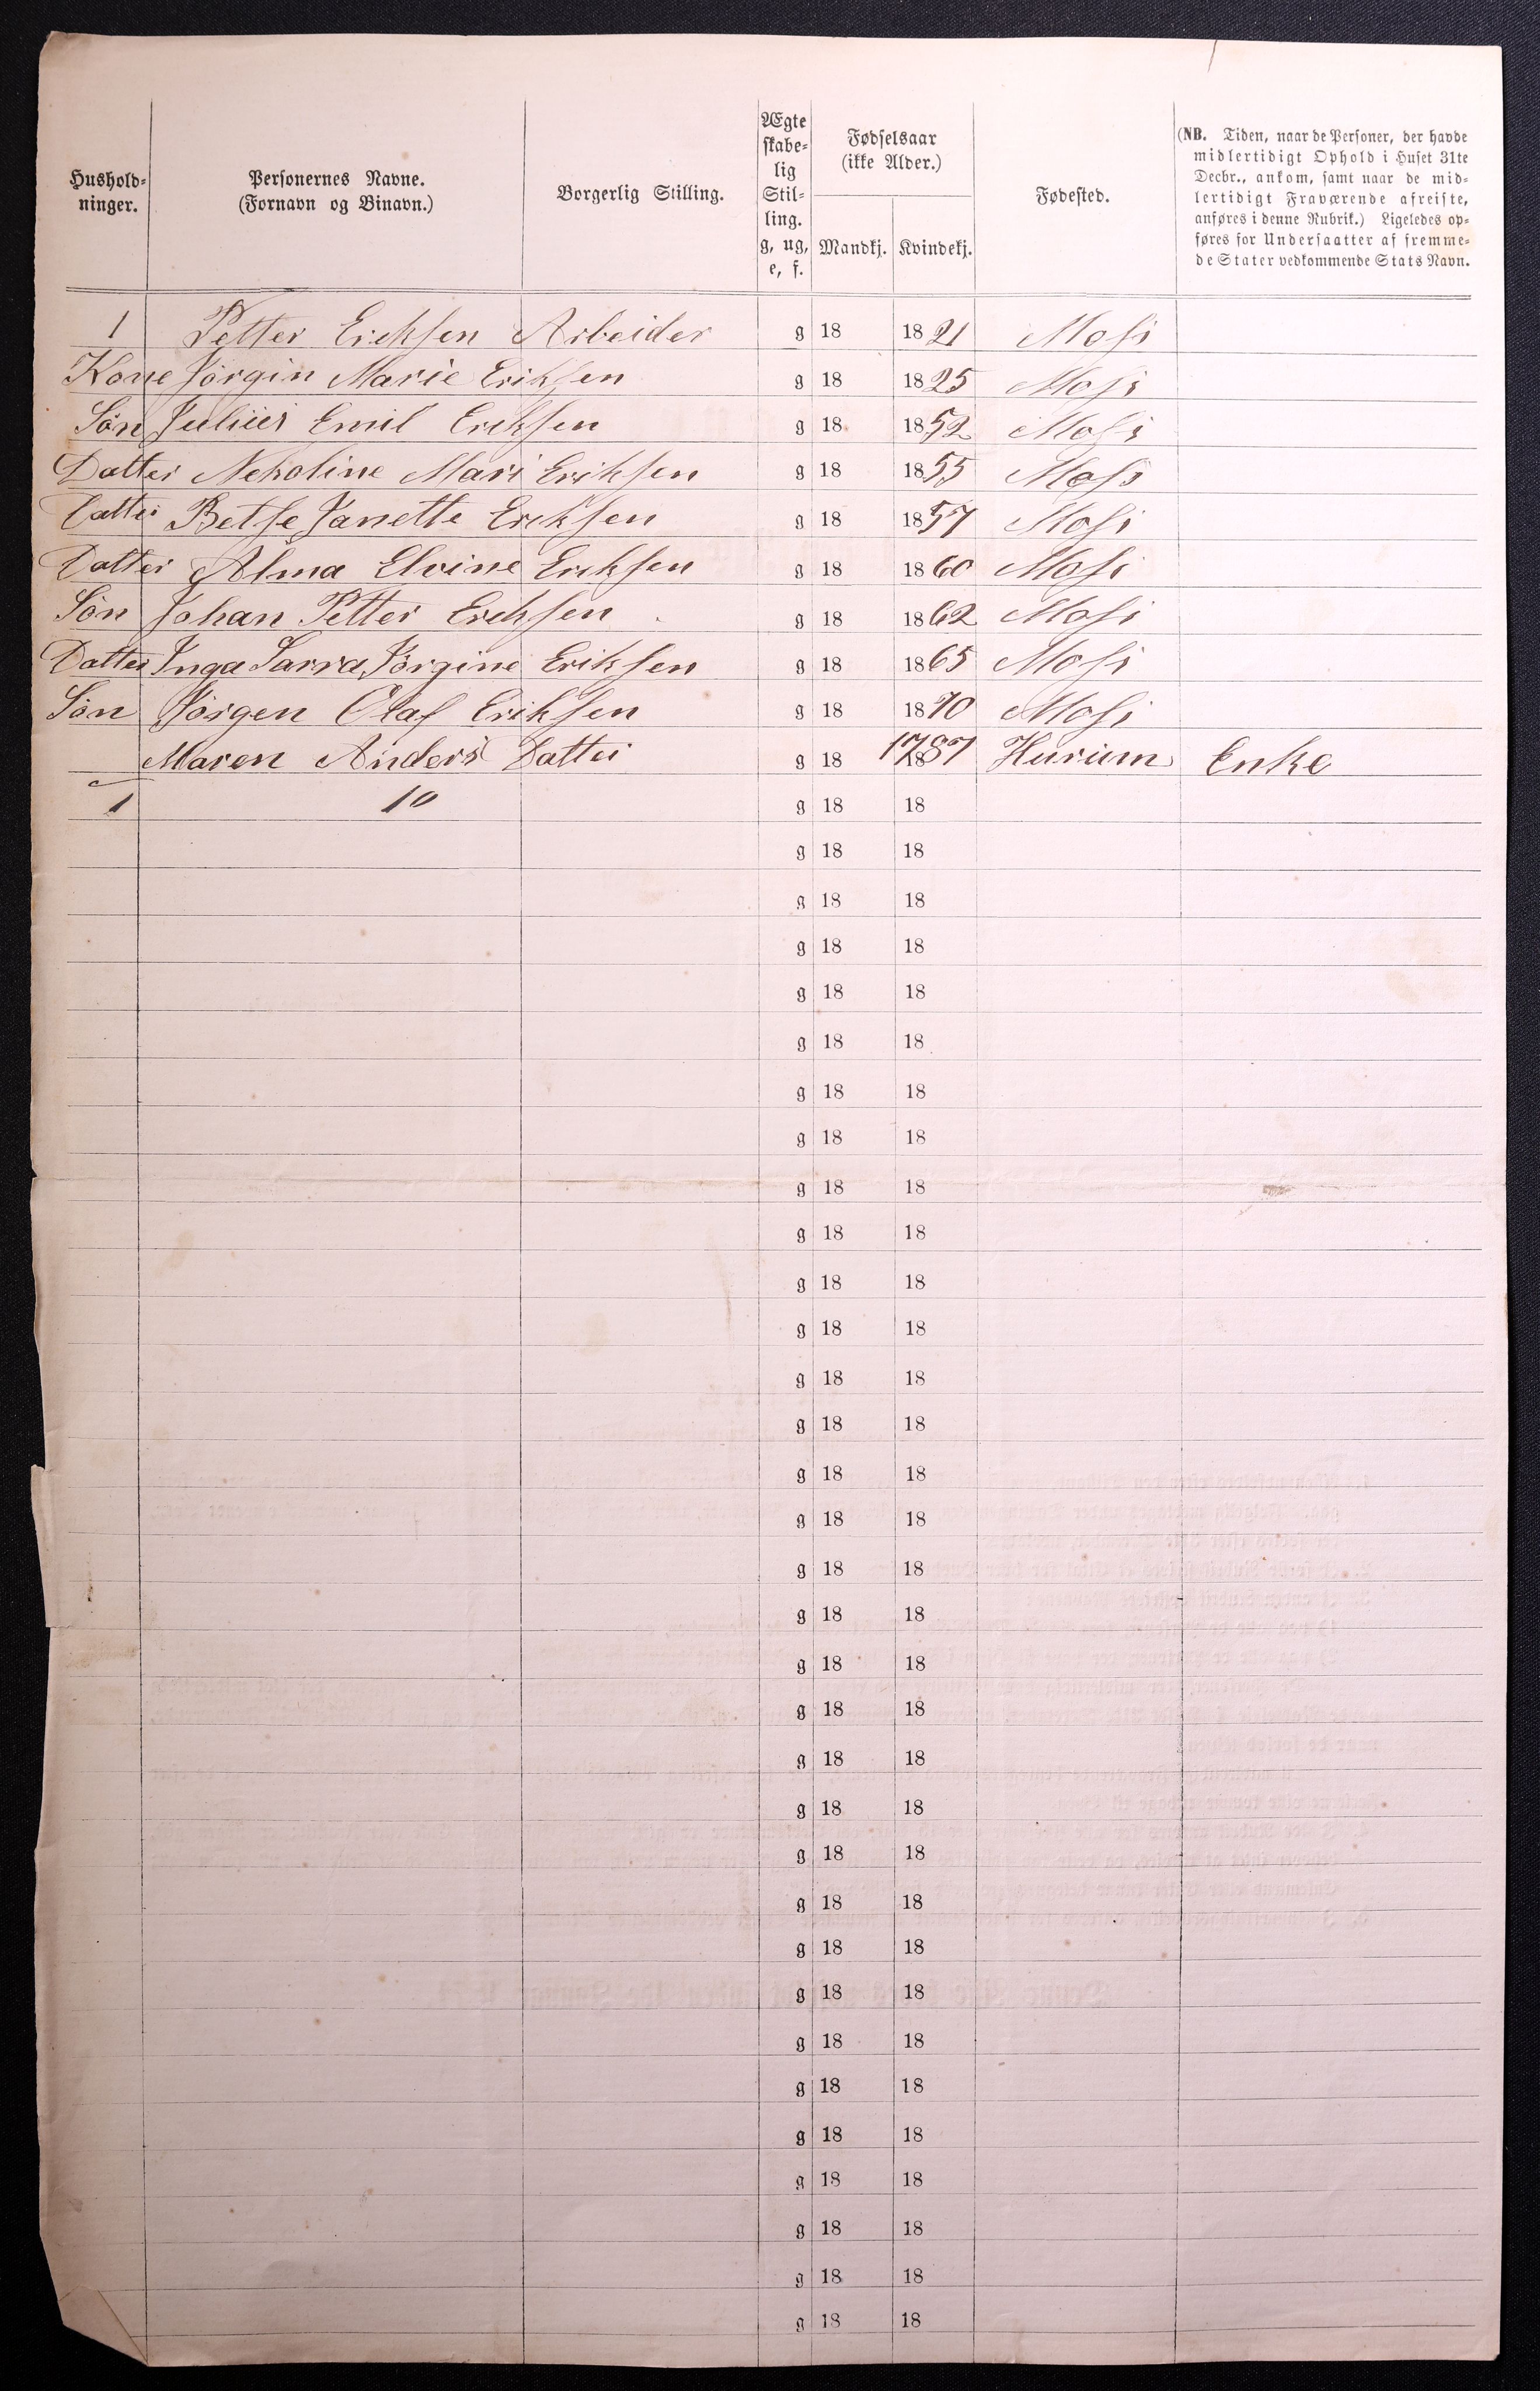 Hushold-
ninger.
Personernes Navne.
(Fornavn og Binavn.)
Borgerlig Stilling.
Ægte
skabe-
lig
Stil-
ling.
g, ug,
e, f.
Fødselsaar
(ikke Alder.)
Mandkj. Kvindekj.
Fødested.
(NB. Tiden, naar de Personer, der havde
midlertidigt Ophold i Huset 31te
Decbr., ankom, samt naar de mid-
lertidigt Fraværende afreiste,
anføres i denne Rubrik.) Ligeledes op-
føres for Undersaatter af fremme-
de Stater vedkommende Stats Navn.
1 Petter Ericksen Arbeider g 18 1821 Moss
Kone Jörgin Marie Eriksen g 18 1825 Moss
Sön Julius Emil Ericksen g 18 1852 Moss
Datter Nekoline Mari Eriksen g 18 1855 Moss
Datter Betse Janette Ericksen g 18 1857 Moss
Datter Alma Elvine Ericksen g 18 1860 Moss
Sön Johan Petter Ericksen g 18 1862 Moss
Datter Inga Sarra Jörgine Eriksen g 18 1865 Moss
Sön Jörgen Olaf Eriksen g 18 1870 Moss
Maren Anders Datter g 18 1787 Hurum Enke
1 10 g 18 18
g 18 18
g 18 18
g 18 18
g 18 18
g 18 18
g 18 18
g 18 18
g 18 18
g 18 18
g 18 18
g 18 18
g 18 18
g 18 18
g 18 18
g 18 18
g 18 18
g 18 18
g 18 18
g 18 18
g 18 18
g 18 18
g 18 18
g 18 18
g 18 18
g 18 18
g 18 18
g 18 18
g 18 18
g 18 18
g 18 18
g 18 18
g 18 18